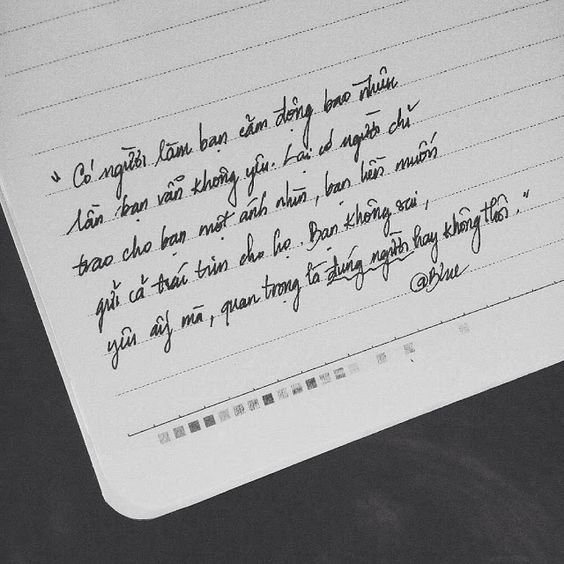 " Có người làm bạn cảm động bao nhiêu
lần bạn vẫn không yêu. Lại có người chỉ
trao cho bạn một ánh nhìn, bạn liền muốn
gửi cả trái tim cho họ. Bạn không sai,
yêu ấy mà, quan trọng là đúng người hay không thôi. "
@Blue